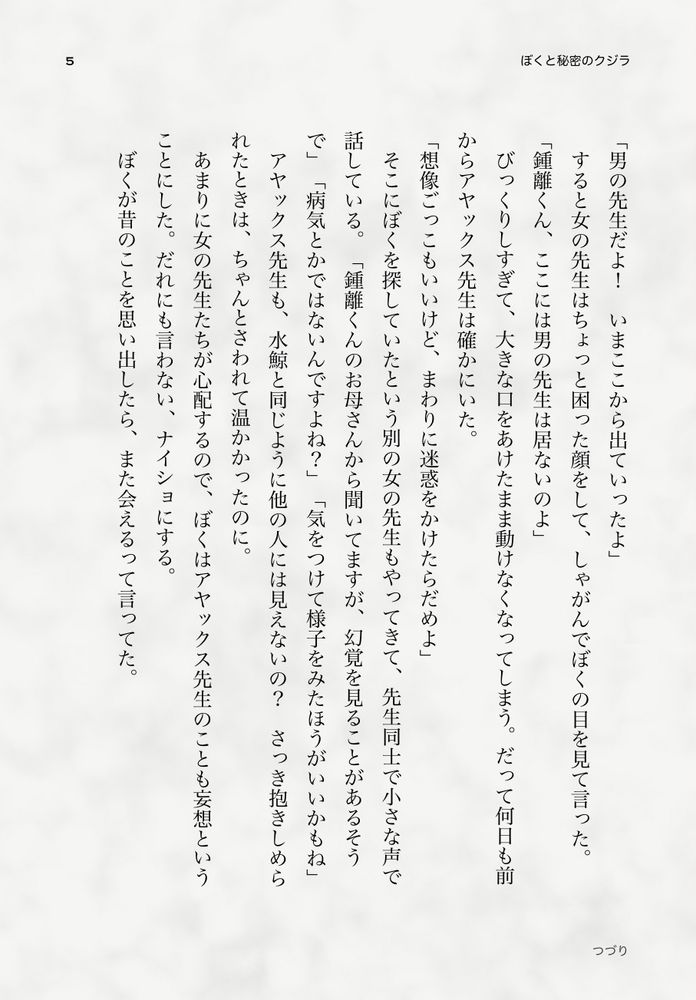 5
ぼくと秘密のクジラ
「男の先生だよ！　いまここから出ていったよ」
すると女の先生はちょっと困った顔をして、しゃがんでぼくの目を見て言った。
「鍾離くん、ここには男の先生は居ないのよ」
びっくりしすぎて、大きな口をあけたまま動けなくなってしまう。だって何日も前
からアヤックス先生は確かにいた。
「想像ごっこもいいけど、まわりに迷惑をかけたらだめよ」
そこにぼくを探していたという別の女の先生もやってきて、先生同士で小さな声で
話している。「鍾離くんのお母さんから聞いてますが、幻覚を見ることがあるそう
で」「病気とかではないんですよね？」「気をつけて様子をみたほうがいいかもね」
アヤックス先生も、水鯨と同じように他の人には見えないの？　さっき抱きしめら
れたときは、ちゃんとさわれて温かかったのに。
あまりに女の先生たちが心配するので、ぼくはアヤックス先生のことも妄想という
ことにした。だれにも言わない、ナイショにする。
ぼくが昔のことを思い出したら、また会えるって言ってた。
つづり